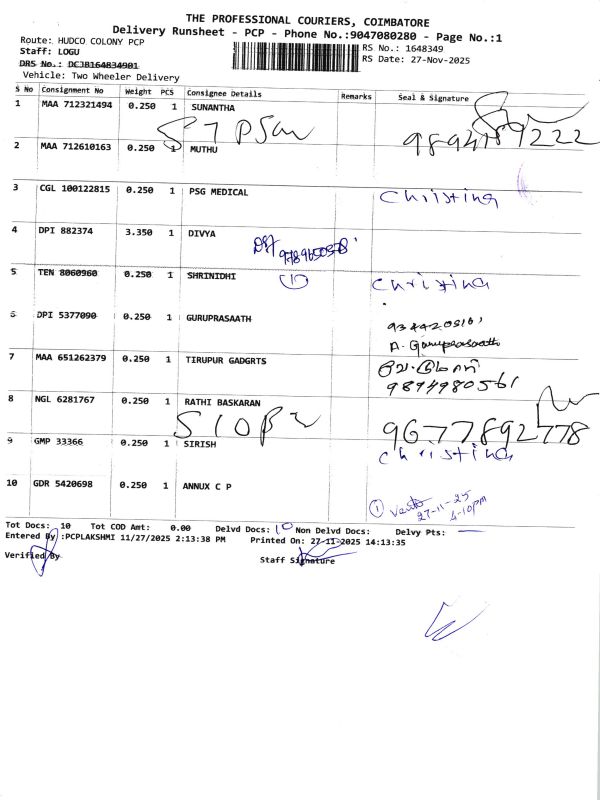 THE PROFESSIONAL COURIERS, COIMBATORE
Delivery Runsheet - PCP - Phone No.:9047080280 - Page No.:1
Route: HUDCO COLONY PCP
RS No.: 1648349
Staff: LOGU
RS Date: 27-Nov-2025
DRS No.: DCJB164834901
Vehicle: Two Wheeler Delivery
S No Consignment No Weight PCS Consignee Details Remarks Seal & Signature
1 MAA 712321494 0.250 1 SUNANTHA
2 MAA 712610163 0.250 1 MUTHU
3 CGL 100122815 0.250 1 PSG MEDICAL Christina
4 DPI 882374 3.350 1 DIVYA
5 TEN 8060960 0.250 1 SHRINIDHI Christina
6 DPI 5377090 0.250 1 GURUPRASAATH
A. Guruprasaath
7 MAA 651262379 0.250 1 TIRUPUR GADGRTS
9894980561
8 NGL 6281767 0.250 1 RATHI BASKARAN
9677892778
9 GMP 33366 0.250 1 SIRISH Christina
10 GDR 5420698 0.250 1 ANNUX C P
27-11-25
4-10pm
Tot Docs: 10 Tot COD Amt: 0.00 Delvd Docs: 10 Non Delvd Docs: Delvy Pts:
Entered By :PCPLAKSHMI 11/27/2025 2:13:38 PM Printed On: 27-11-2025 14:13:35
Verified By Staff Signature